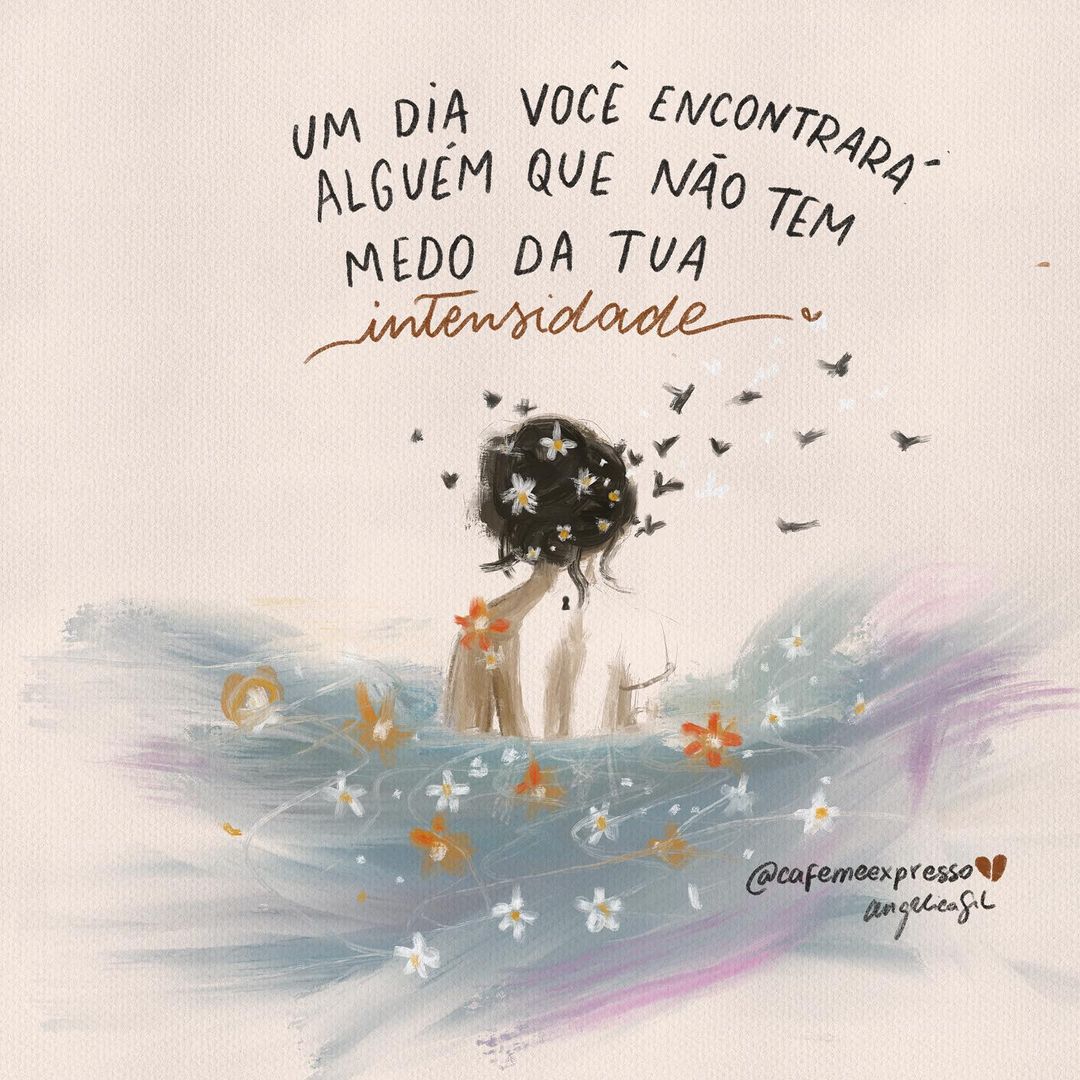 UM DiA VOCÊ ENCONTRARÁ
ALGUÉM QUE NÃO TEM
MEDO DA TUA
intensidade
@cafemeexpresso
angelicagil